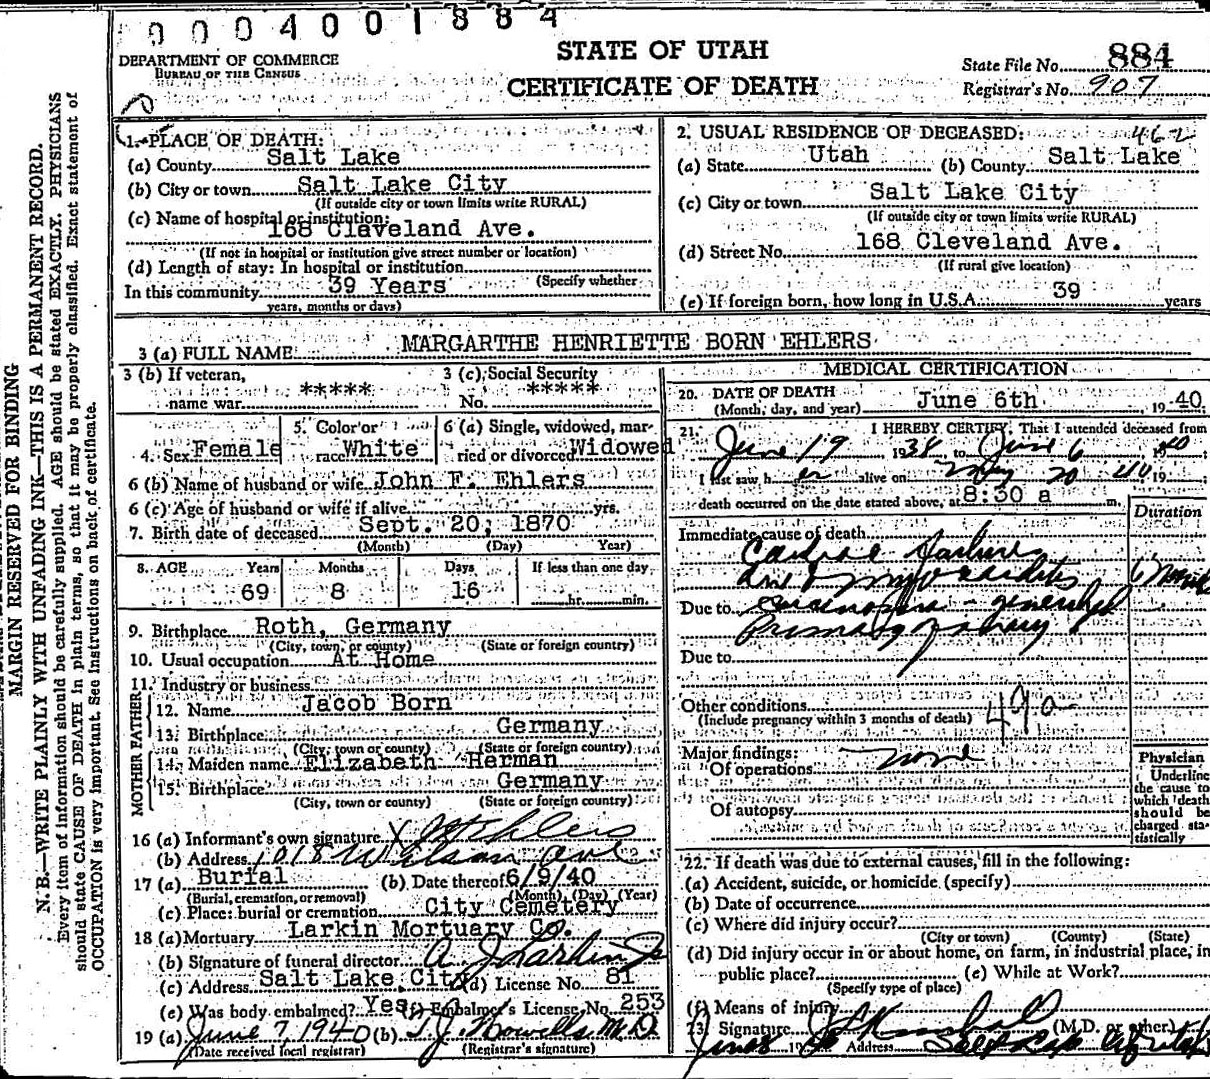 0004001884
DEPARTMENT OF COMMERCE
BUREAU OF THE CENSUS
STATE OF UTAH
CERTIFICATE OF DEATH
State File No. 884
Registrar's No. 907
MARGIN RESERVED FOR BINDING
N. B.—WRITE PLAINLY WITH UNFADING INK—THIS IS A PERMANENT RECORD.
Every item of information should be carefully supplied. AGE should be stated EXACTLY. PHYSICIANS
should state CAUSE OF DEATH in plain terms, so that it may be properly classified. Exact statement of
OCCUPATION is very important. See instructions on back of certificate.
1. PLACE OF DEATH:
(a) County Salt Lake
(b) City or town Salt Lake City
(If outside city or town limits write RURAL)
(c) Name of hospital or institution:
168 Cleveland Ave.
(If not in hospital or institution give street number or location)
(d) Length of stay: In hospital or institution
(Specify whether
In this community 39 Years
years, months or days)
2. USUAL RESIDENCE OF DECEASED: 462
(a) State Utah (b) County Salt Lake
(c) City or town Salt Lake City
(If outside city or town limits write RURAL)
(d) Street No. 168 Cleveland Ave.
(If rural give location)
(e) If foreign born, how long in U.S.A. 39 years
3 (a) FULL NAME MARGARTHE HENRIETTE BORN EHLERS
3 (b) If veteran,
name war *****
3 (c) Social Security
No. *****
4. Sex Female
5. Color or
race White
6 (a) Single, widowed, mar-
ried or divorced Widowed
6 (b) Name of husband or wife John F. Ehlers
6 (c) Age of husband or wife if alive yrs.
7. Birth date of deceased Sept. 20, 1870
(Month) (Day) Year)
8. AGE Years Months Days If less than one day
69 8 16 hr. min.
9. Birthplace Roth, Germany
(City, town, or county) (State or foreign country)
10. Usual occupation At Home
11. Industry or business
FATHER
12. Name Jacob Born
13. Birthplace Germany
(City, town or county) (State or foreign country)
MOTHER
14. Maiden name Elizabeth Herman
15. Birthplace Germany
(City, town or county) (State or foreign country)
16 (a) Informant's own signature X Ehlers
(b) Address 1018 Wilson Ave
17 (a) Burial (b) Date thereof 6/9/40
(Burial, cremation, or removal) (Month) (Day) (Year)
(c) Place: burial or cremation City Cemetery
18 (a) Mortuary Larkin Mortuary Co.
(b) Signature of funeral director A J Larkin Jr
(c) Address Salt Lake City (d) License No. 81
(e) Was body embalmed? Yes (f) Embalmer's License No. 253
19 (a) June 7, 1940 (b) T. J. Howells M.D.
(Date received local registrar) (Registrar's signature)
MEDICAL CERTIFICATION
20. DATE OF DEATH
(Month, day, and year) June 6th, 1940
21. I HEREBY CERTIFY, That I attended deceased from
June 19 1938, to June 6 1940;
I last saw her alive on May 20 40 19 ;
death occurred on the date stated above, at 8:30 a m.
Duration
Immediate cause of death
Cardiac failure
and myocarditis
Due to Carcinoma - general
Primary
Due to
Other conditions
(Include pregnancy within 3 months of death) 49a
Major findings:
Of operations none
Of autopsy
Physician
Underline
the cause to
which death
should be
charged sta-
tistically
22. If death was due to external causes, fill in the following:
(a) Accident, suicide, or homicide (specify)
(b) Date of occurrence
(c) Where did injury occur?
(City or town) (County) (State)
(d) Did injury occur in or about home, on farm, in industrial place, in
public place? (e) While at Work?
(Specify type of place)
(f) Means of injury
23. Signature (M.D. or other)
Address Salt Lake City Utah